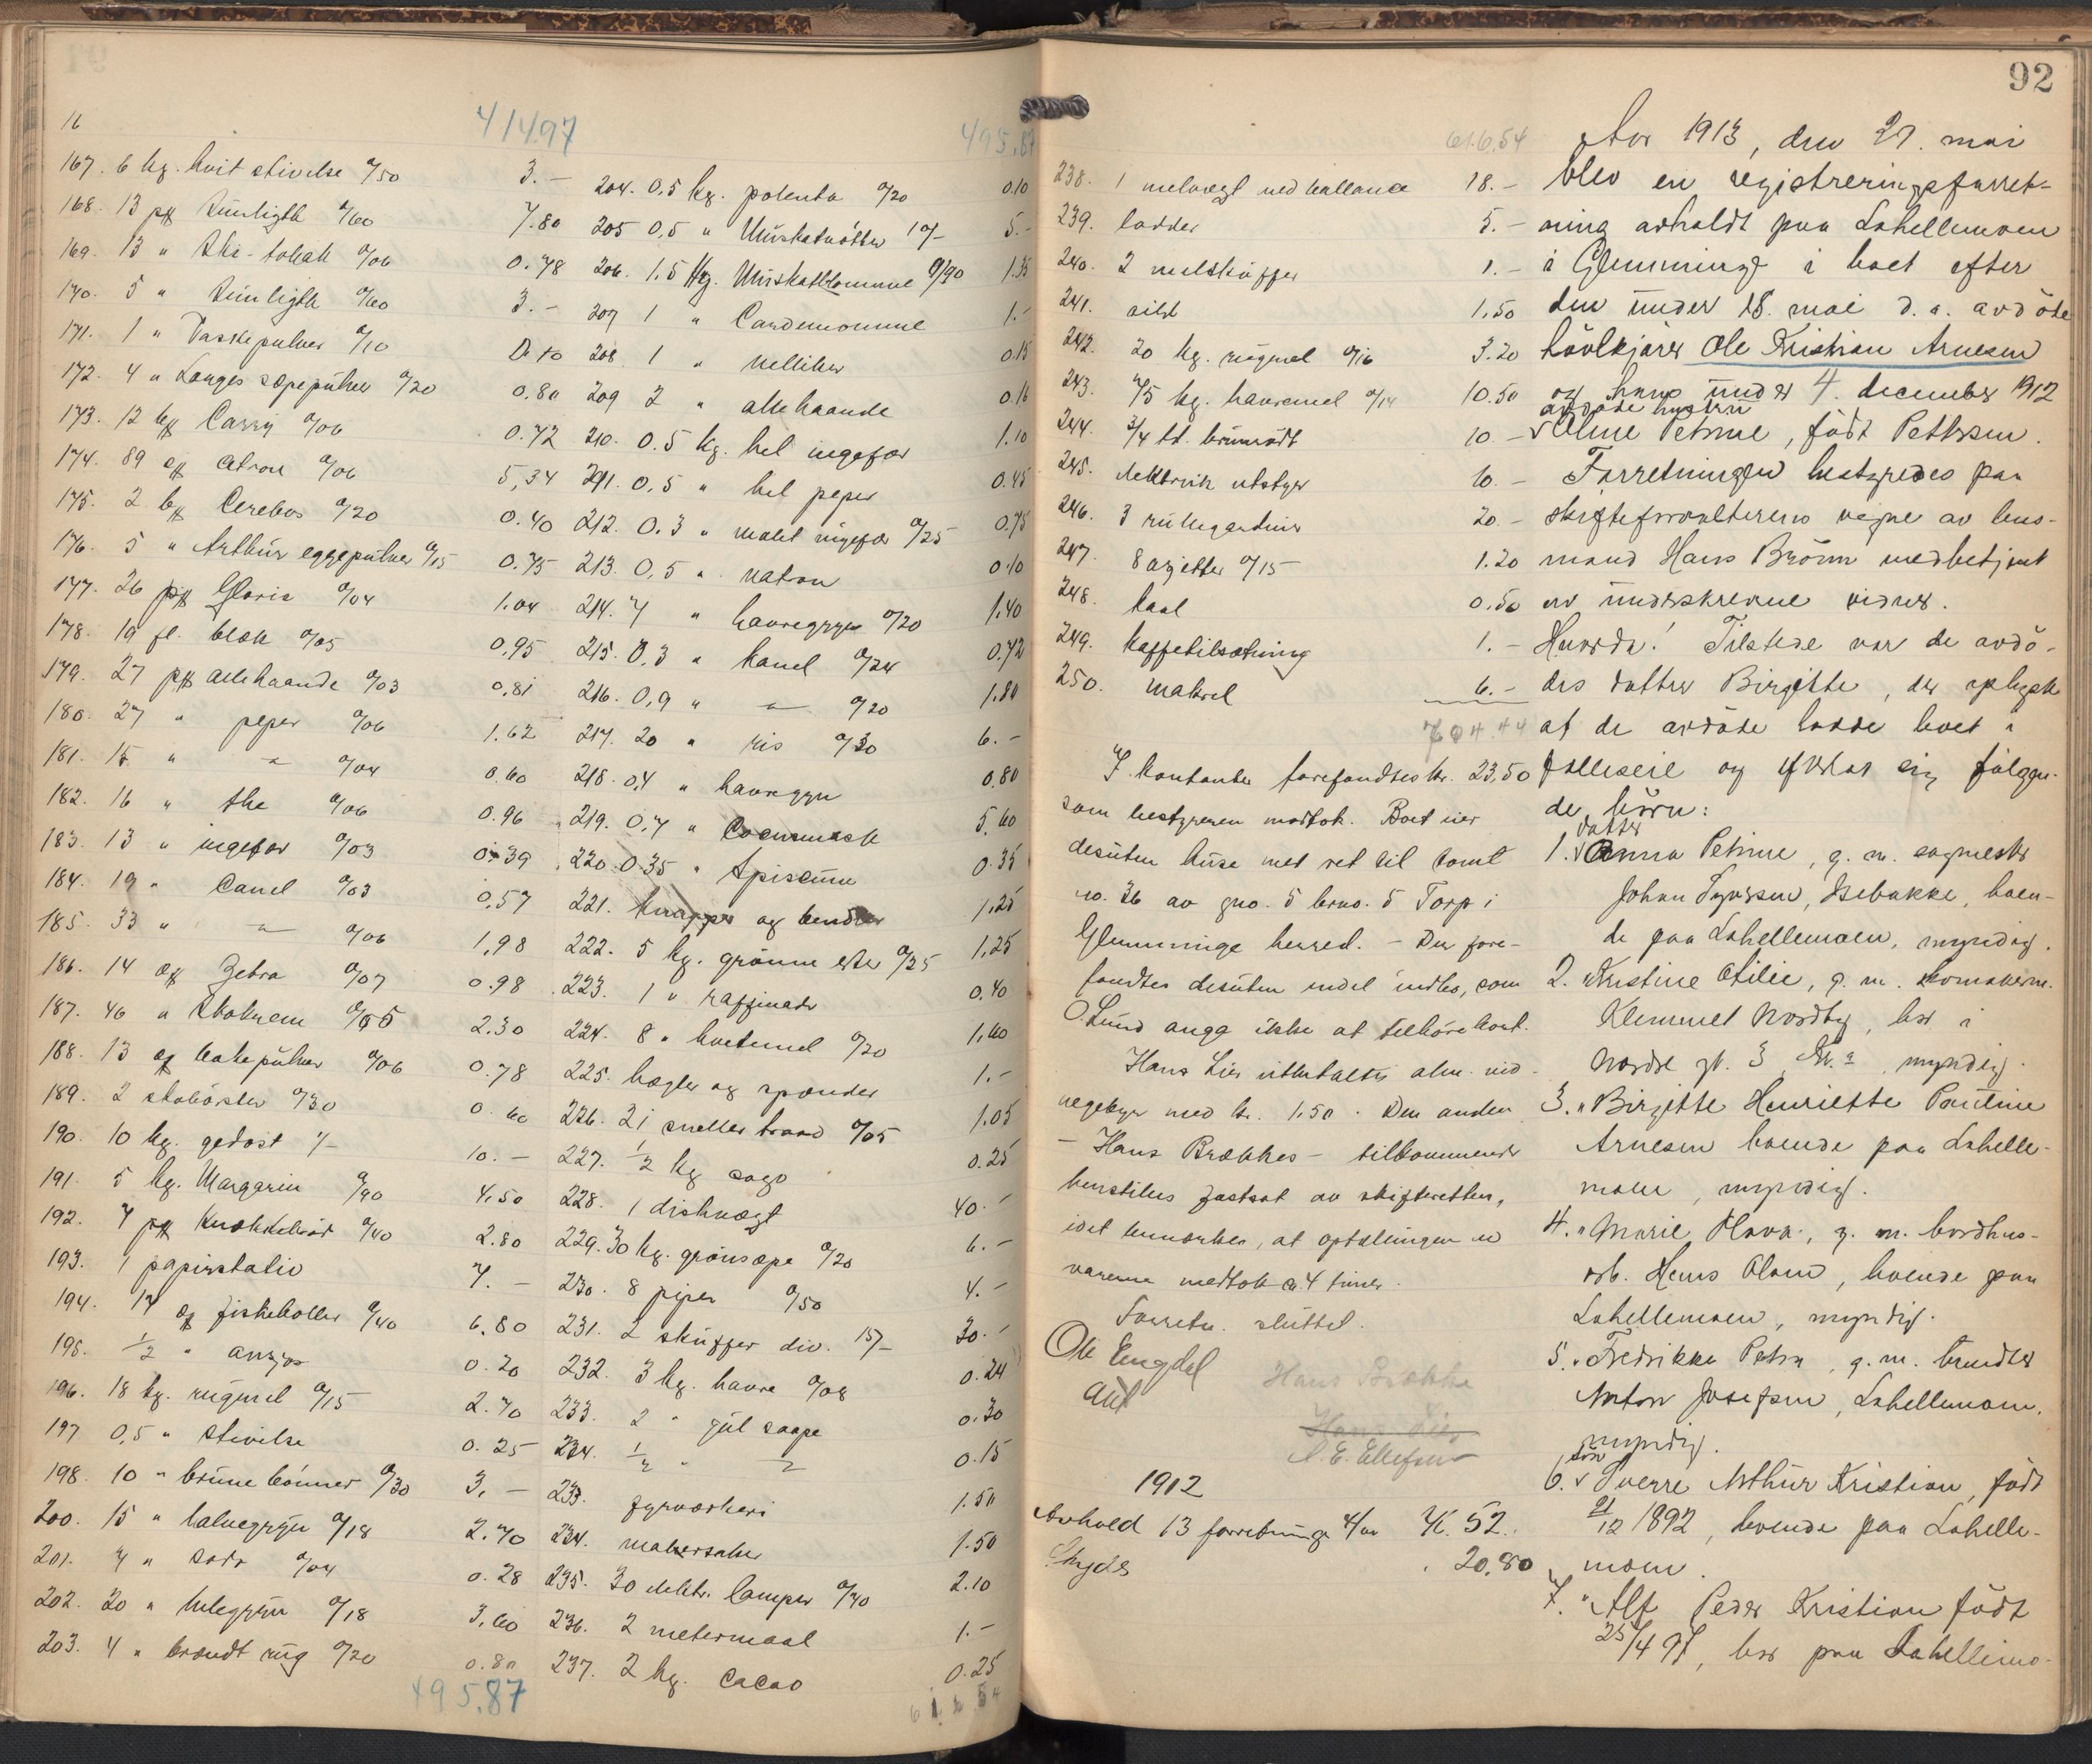 16
41497
167. 6 kg. hvit stivelse a/50 3.-
168. 13 pk Sunligth a/60 7.80
169. 13 " Ska-tobak a/06 0.78
170. 5 " Sunligth a/60 3.-
171. 1 " Vaskepulver a/10 0.10
172. 4 " Langes sæpepulver a/20 0.80
173. 12 bx Carry a/06 0.72
174. 89 æsk Citron a/06 5,34
175. 2 bx Cerebos a/20 0.40
176. 5 " Arthur eggepulver a/15 0.75
177. 26 pk Gloria a/04 1.04
178. 19 fl. blæk a/05 0,95
179. 27 pk allehaande a/03 0,81
180. 27 " peper a/06 1.62
181. 15 " - a/04 0.60
182. 16 " the a/06 0.96
183. 13 " ingefær a/03 0.39
184. 19 " Canel a/03 0,57
185. 33 " - a/06 1,98
186. 14 æsk Zebra a/07 0.98
187. 46 " Skokrem a/05 2.30
188. 13 æsk bakepulver a/06 0.78
189. 2 skobörster a/30 0.60
190. 10 kg. gedost 1/- 10.-
191. 5 kg. Margarin a/90 4,50
192. 7 pk Knækkebröd a/40 2.80
193. 1 papirstativ 7.-
194. 17 æsk fiskeboller a/40 6,80
195. 1/2 " ansjos 0.20
196. 18 kg. rugmel a/15 2.70
197 0,5 " Stivelse 0.25
198. 10 " brune bönner a/30 3,-
200. 15 " halvegryn a/18 2.70
201. 7 " soda a/04 0.28
202. 20 " helegryn a/18 3,60
203. 4 " brændt rug a/20 0.80
495.87
495,87
204. 0,5 kg. polenta a/20 0.10
205 0,5 " Muskatnötter 10/- 5.-
206. 1.5 Hg. Muskatblomme a/90 1.35
207 1 " Cardemomme 1.-
208 1 " nelliker 0.15
209 2 " allehaande 0.16
210. 0.5 kg. hel ingefær 1.10
211. 0,5 " hel peper 0.45
212. 0.3 " malet ingefær a/25 0.75
213. 0,5 " natron 0.10
214. 7 " havregryn a/20 1,40
215. 0,3 " kanel a/24 0.72
216. 0,9 " - a/20 1.80
217. 20 " ris a/30 6.-
218. 0,4 " havregryn 0.80
219. 0,7 " Cocusmask 5,60
220. 0.35 " Spiscum 0.35
221. knapper og bendler 1,25
222. 5 kg. grönne erter a/25 1,25
223. 1 " raffinade 0,40
224. 8 " hvetemel a/20 1,60
225. hægter og spænder 1.-
226. 21 sneller traad a/05 1.05
227. 1/2 kg sago 0.25
228. 1 diskvægt 40.-
229. 30 kg. grönsæpe a/20 6.-
230. 8 piper a/50 4.-
231. 2 skuffer div. 15/- 30.-
232. 3 kg. havre a/08 0.24
233. 2 " gul saape 0.30
234. 1/2 " - 0.15
233. fyrverkeri 1.50
234. malersaker 1.50
235. 30 elektr. lamper a/70 2.10
236. 2 metermaal 1.-
237. 2 kg. cacao 0.25
616.54
92
616.54
238. 1 melvegt med ballance 18.-
239. lodder 5.-
240. 2 melskuffer 1.-
241. sild 1,50
242. 20 kg. rugmel a/16 3.20
243. 75 kg. havremel a/14 10.50
244. 3/4 td. brunrödt 10.-
245. elektrisk utstyr 10.-
246. 3 rullegardiner 20.-
247. 8 asjetter a/15 1.20
248. kaal 0,50
249. kaffetilsætning 1.-
250. makrel 6.-
704.44
I kontanter forefandtes kr. 23,50
som bestyreren mottok. Boet eier
desuten huse med ret til tomt
no. 36 av gno. 5 brno. 5 Torp i
Glemminge herred. - Der fore-
fandtes desuten endel indbo, som
O. Lund angα ikke at tilhöre boet.
Hans Lies utbetaltes alm. vid-
negebyr med kr. 1.50. Den anden
- Hans Brækkes - tilkommende
henstilles fastsat av skifteretten,
idet bemerkes, at optællingen av
varerne medtok ca 4 timer.
Forretn. sluttet.
Ole Engdal
Hans Brække
Hans Lies
A. E. Ellefsen
1912
Avhold 13 forretninge a 4/00 K. 52.
Skyds 20,80
Aar 1913, den 27. mai
blev en registreringsforret-
ning avholdt paa Lahellemoen
i Glemminge i boet efter
den under 18. mai d.a. avdöde
hövlkjører Ole Kristian Arnesen
og hans under 4. december 1912
avdöde hustru
Oline Petrine, född Pettersen.
Forretningen bestyredes paa
skifteforvalterens vegne av lens-
mand Hans Brönn medbetjent
av underskrevne vidner.
Hvorda! Tilstede var de avdö-
des datter Birgitte, der oplyste
at de avdöde hadde boet i
fælleseie og efterlot sig fölgen-
de börn:
datter
1. Anna Petrine, g. m. sagmester
Johan Syversen, Isebakke, boen-
de paa Lahellemoen, myndig.
2. " Kristine Otilie, g. m. skomakerm.
Klemmet Nordby, bor i
Nordre gt. 3, Kr.a, myndig.
3. " Birgitte Henriette Pauline
Arnesen boende paa Lahelle-
moen, myndig.
4. " Marie Olava, g. m. bordhus-
arb. Hans Olsen, boende paa
Lahellemoen, myndig.
5. " Fredrikke Petra, g. m. tomter
Anton Josefsen, Lahellemoen,
myndig.
sön
6. Sverre Arthur Kristian, född
21/12 1892, boende paa Lahelle-
moen.
7. " Alf Peder Kristian född
25/4 97, bor paa Lahellemo-